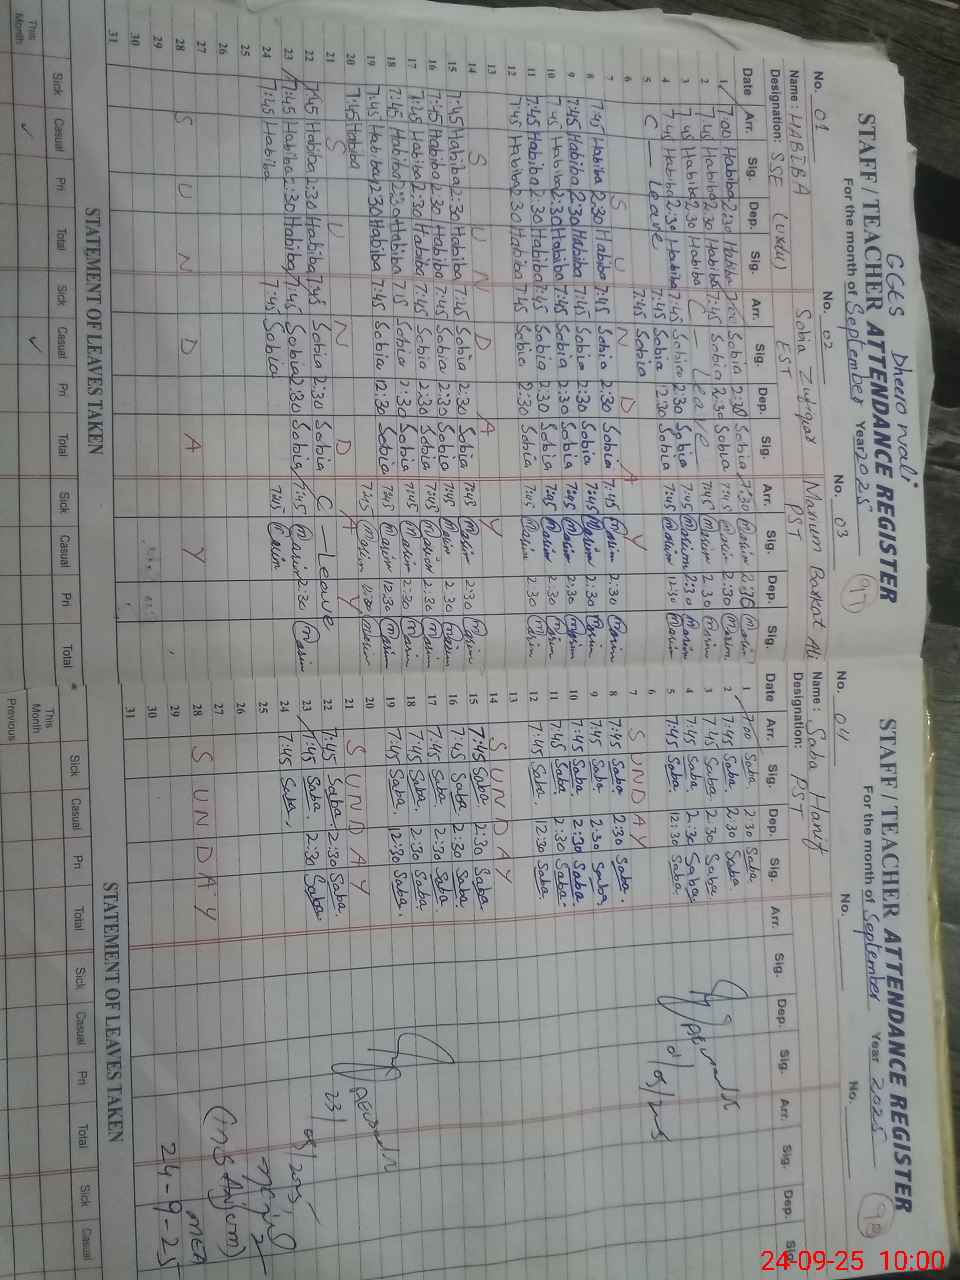 GGES Dheero wali
STAFF / TEACHER ATTENDANCE REGISTER
For the month of September Year 2025
No. 01 No. 02 No. 03
Name: HABIBA Sobia Zulfiqar Marium Barkat Ali
Designation: SSE EST PST
Date Arr. Sig. Dep. Sig. Arr. Sig. Dep. Sig. Arr. Sig. Dep. Sig.
1 7:00 Habiba 2:30 Habiba 7:00 Sobia 2:30 Sobia 7:30 2:30
2 7:45 Habiba 2:30 Habiba 7:45 Sobia 2:30 Sobia 7:45 2:30
3 7:45 Habiba 2:30 Habiba C — Leave 7:45 2:30
4 7:45 Habiba 2:30 Habiba 7:45 Sobia 2:30 Sobia 7:45 2:30
5 C — Leave 7:45 Sobia 12:30 Sobia 7:45 12:30
6 7:45 Sobia
7 S U N D A Y
8 7:45 Habiba 2:30 Habiba 7:45 Sobia 2:30 Sobia 7:45 2:30
9 7:45 Habiba 2:30 Habiba 7:45 Sobia 2:30 Sobia 7:45 2:30
10 7:45 Habiba 2:30 Habiba 7:45 Sobia 2:30 Sobia 7:45 2:30
11 7:45 Habiba 2:30 Habiba 7:45 Sobia 2:30 Sobia 7:45 2:30
12 7:45 Habiba 2:30 Habiba 7:45 Sobia 2:30 Sobia 7:45 2:30
13
14 S U N D A Y
15 7:45 Habiba 2:30 Habiba 7:45 Sobia 2:30 Sobia 7:45 2:30
16 7:45 Habiba 2:30 Habiba 7:45 Sobia 2:30 Sobia 7:45 2:30
17 7:45 Habiba 2:30 Habiba 7:45 Sobia 2:30 Sobia 7:45 2:30
18 7:45 Habiba 2:30 Habiba Sobia 2:30 Sobia 7:45 2:30
19 7:45 Habiba 12:30 Habiba 7:45 Sobia 12:30 Sobia 7:45 12:30
20 7:45 Habiba
21 S U N D A Y
22 7:45 Habiba 2:30 Habiba 7:45 Sobia 2:30 Sobia C — Leave
23 7:45 Habiba 2:30 Habiba 7:45 Sobia 2:30 Sobia 7:45 2:30
24 7:45 Habiba 7:45 Sobia 7:45
25
26
27
28 S U N D A Y
29
30
31
STATEMENT OF LEAVES TAKEN
Sick Casual Pri Total Sick Casual Pri Total Sick Casual Pri Total
This Month ✓ ✓
STAFF / TEACHER ATTENDANCE REGISTER
For the month of September Year 2025
No. 04 No. No.
Name: Saba Hanif
Designation: PST
Date Arr. Sig. Dep. Sig. Arr. Sig. Dep. Sig. Arr. Sig. Dep. Sig.
1 7:00 Saba. 2:30 Saba.
2 7:45 Saba. 2:30 Saba.
3 7:45 Saba. 2:30 Saba.
4 7:45 Saba. 2:30 Saba.
5 7:45 Saba. 12:30 Saba.
6
7 S U N D A Y
8 7:45 Saba. 2:30 Saba.
9 7:45 Saba. 2:30 Saba.
10 7:45 Saba. 2:30 Saba.
11 7:45 Saba. 2:30 Saba.
12 7:45 Saba. 12:30 Saba.
13
14 S U N D A Y
15 7:45 Saba. 2:30 Saba.
16 7:45 Saba. 2:30 Saba.
17 7:45 Saba. 2:30 Saba.
18 7:45 Saba. 2:30 Saba.
19 7:45 Saba. 12:30 Saba.
20
21 S U N D A Y
22 7:45 Saba. 2:30 Saba.
23 7:45 Saba. 2:30 Saba.
24 7:45 Saba.
25
26
27
28 S U N D A Y
29
30
31
(Ms Anjum)
MEA
24-9-25
STATEMENT OF LEAVES TAKEN
Sick Casual Pri Total Sick Casual Pri Total Sick Casual
This Month
Previous
24-09-25 10:00